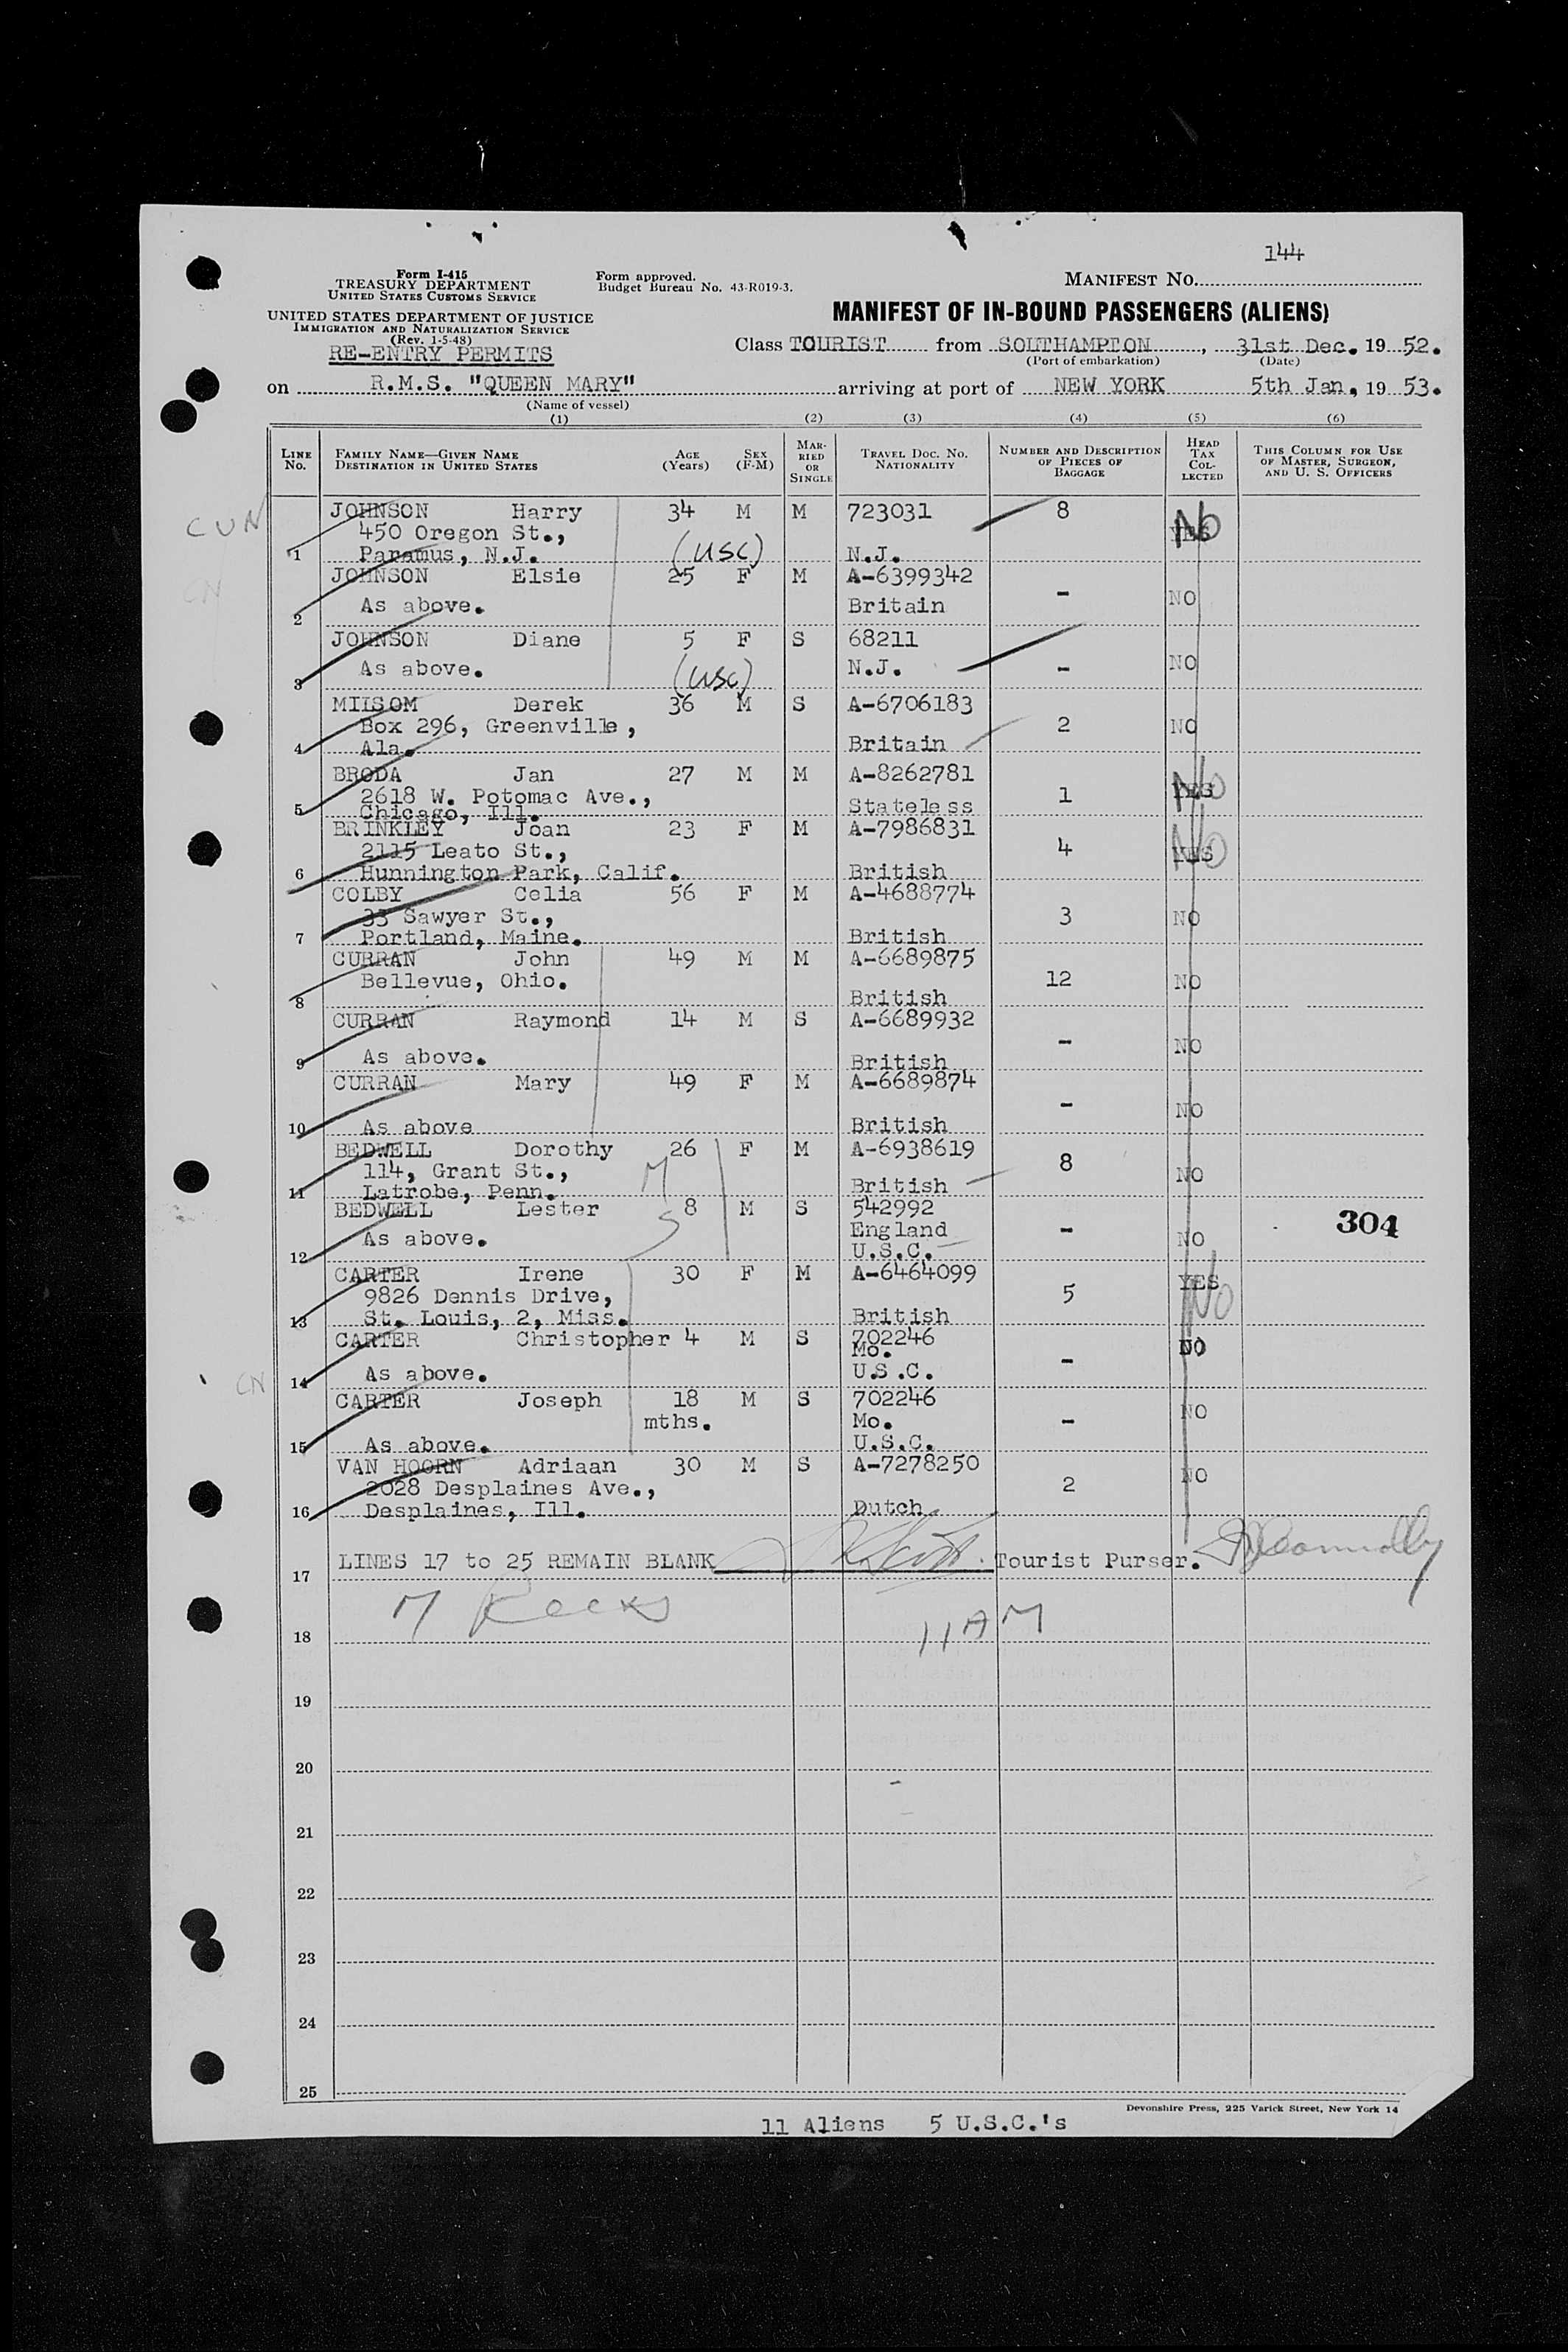 144
Form I-415
TREASURY DEPARTMENT
UNITED STATES CUSTOMS SERVICE
Form approved.
Budget Bureau No. 43-R019-3.
MANIFEST NO.
UNITED STATES DEPARTMENT OF JUSTICE
IMMIGRATION AND NATURALIZATION SERVICE
(Rev. 1-5-48)
RE-ENTRY PERMITS
MANIFEST OF IN-BOUND PASSENGERS (ALIENS)
Class TOURIST from SOUTHAMPTON, 31st Dec. 19 52.
(Port of embarkation) (Date)
on R.M.S. "QUEEN MARY" arriving at port of NEW YORK 5th Jan, 19 53.
(Name of vessel)
(1) (2) (3) (4) (5) (6)
LINE No. FAMILY NAME—GIVEN NAME DESTINATION IN UNITED STATES AGE (Years) SEX (F-M) MARRIED OR SINGLE TRAVEL DOC. NO. NATIONALITY NUMBER AND DESCRIPTION OF PIECES OF BAGGAGE HEAD TAX COLLECTED THIS COLUMN FOR USE OF MASTER, SURGEON, AND U. S. OFFICERS
CUN JOHNSON Harry 34 M M 723031 8
450 Oregon St., YES No
1 Paramus, N.J. (USC) N.J.
CN JOHNSON Elsie 25 F M A-6399342
2 As above. Britain - NO
JOHNSON Diane 5 F S 68211
3 As above. (USC) N.J. - NO
MIISOM Derek 36 M S A-6706183
Box 296, Greenville, 2 NO
4 Ala. Britain
BRODA Jan 27 M M A-8262781
2618 W. Potomac Ave., 1 YES No
5 Chicago, Ill. Stateless
BRINKLEY Joan 23 F M A-7986831
2115 Leato St., 4 YES No
6 Hunnington Park, Calif. British
COLBY Celia 56 F M A-4688774
33 Sawyer St., 3 NO
7 Portland, Maine. British
CURRAN John 49 M M A-6689875
Bellevue, Ohio. 12 NO
8 British
CURRAN Raymond 14 M S A-6689932
- NO
9 As above. British
CURRAN Mary 49 F M A-6689874
- NO
10 As above British
BEDWELL Dorothy 26 F M A-6938619
114, Grant St., M 8 NO
11 Latrobe, Penn. British
BEDWELL Lester 8 M S 542992
As above. S England - NO 304
12 U.S.C.
CARTER Irene 30 F M A-6464099
9826 Dennis Drive, 5 YES No
13 St. Louis, 2, Miss. British
CARTER Christopher 4 M S 702246
Mo. - NO
CN 14 As above. U.S.C.
CARTER Joseph 18 M S 702246
mths. Mo. - NO
15 As above. U.S.C.
VAN HOORN Adriaan 30 M S A-7278250
2028 Desplaines Ave., 2 NO
16 Desplaines, Ill. Dutch
17 LINES 17 to 25 REMAIN BLANK Tourist Purser.
18 11AM
19
20
21
22
23
24
25
Devonshire Press, 225 Varick Street, New York 14
11 Aliens 5 U.S.C.'s